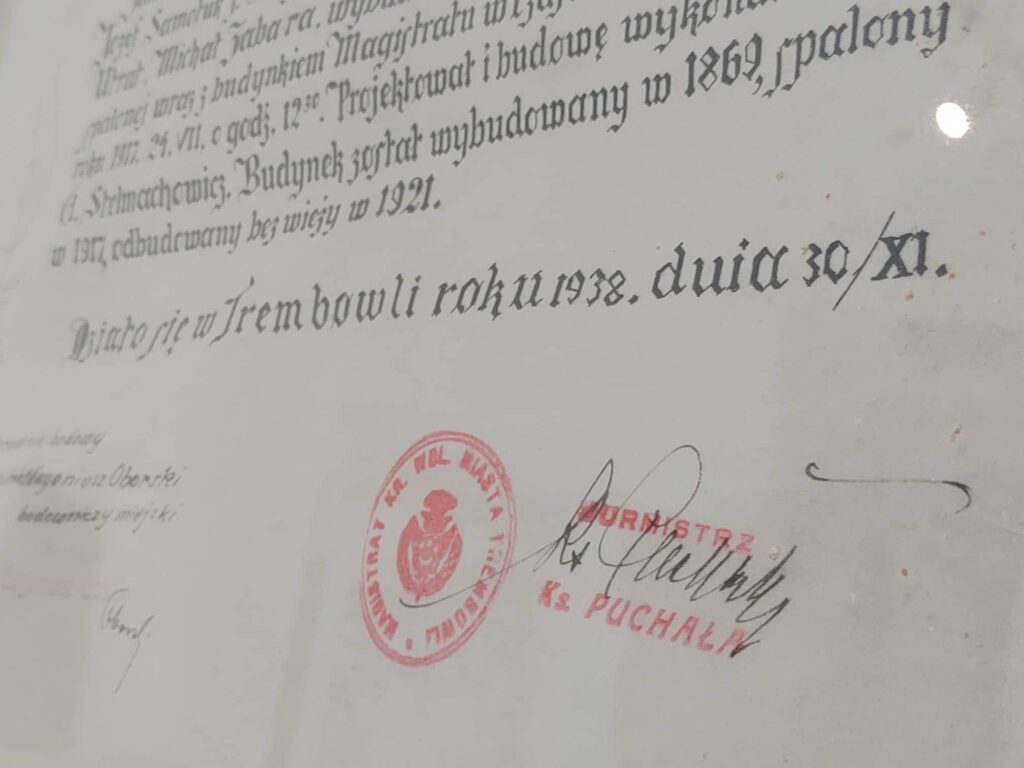 Józef Samoluk
Wrat. Michał Zabara, wybu
spalonej wraz z budynkiem Magistratu w czas
roku 1917. 24. VII. o godz. 12³⁰. Projektował i budowę wykona
A. Stelmachowicz. Budynek został wybudowany w 1869, spalony
w 1917, odbudowany bez wieży w 1921.
Działo się w Trembowli roku 1938. dnia 30/XI.
budowy
Oberski
budowniczy miejski
MAGISTRAT KR. WOL. MIASTA TREMBOWLI
BURMISTRZ
Ks. PUCHAŁA